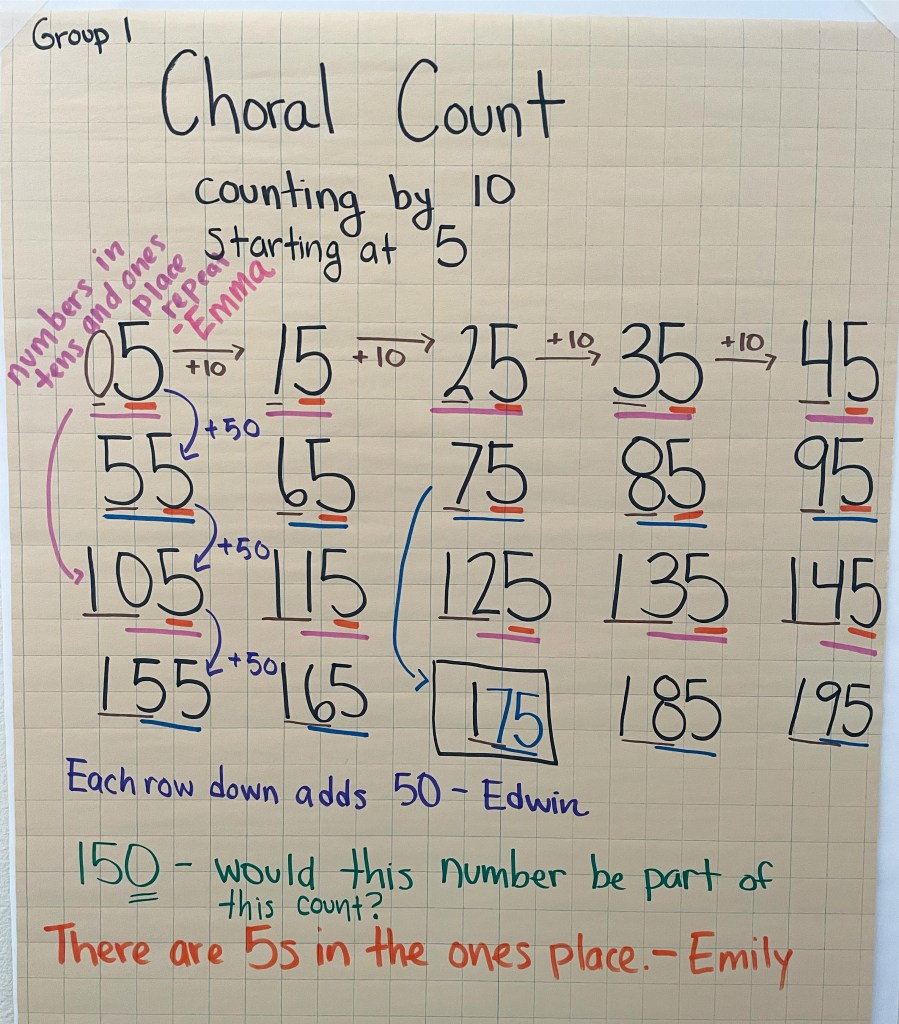 Group 1
Choral Count
counting by 10
starting at 5
numbers in
tens and ones
place
repeat
-Emma
05 +10 15 +10 25 +10 35 +10 45
+50
55 65 75 85 95
+50
105 115 125 135 145
+50
155 165 175 185 195
Each row down adds 50 - Edwin
150 - would this number be part of
this count?
There are 5s in the ones place. - Emily